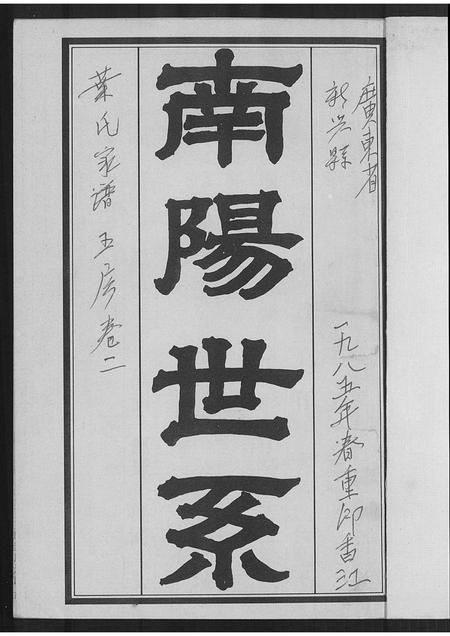 廣東省
新兴縣
一九八五年春重印香江
南陽世系
葉氏家譜 五房卷二